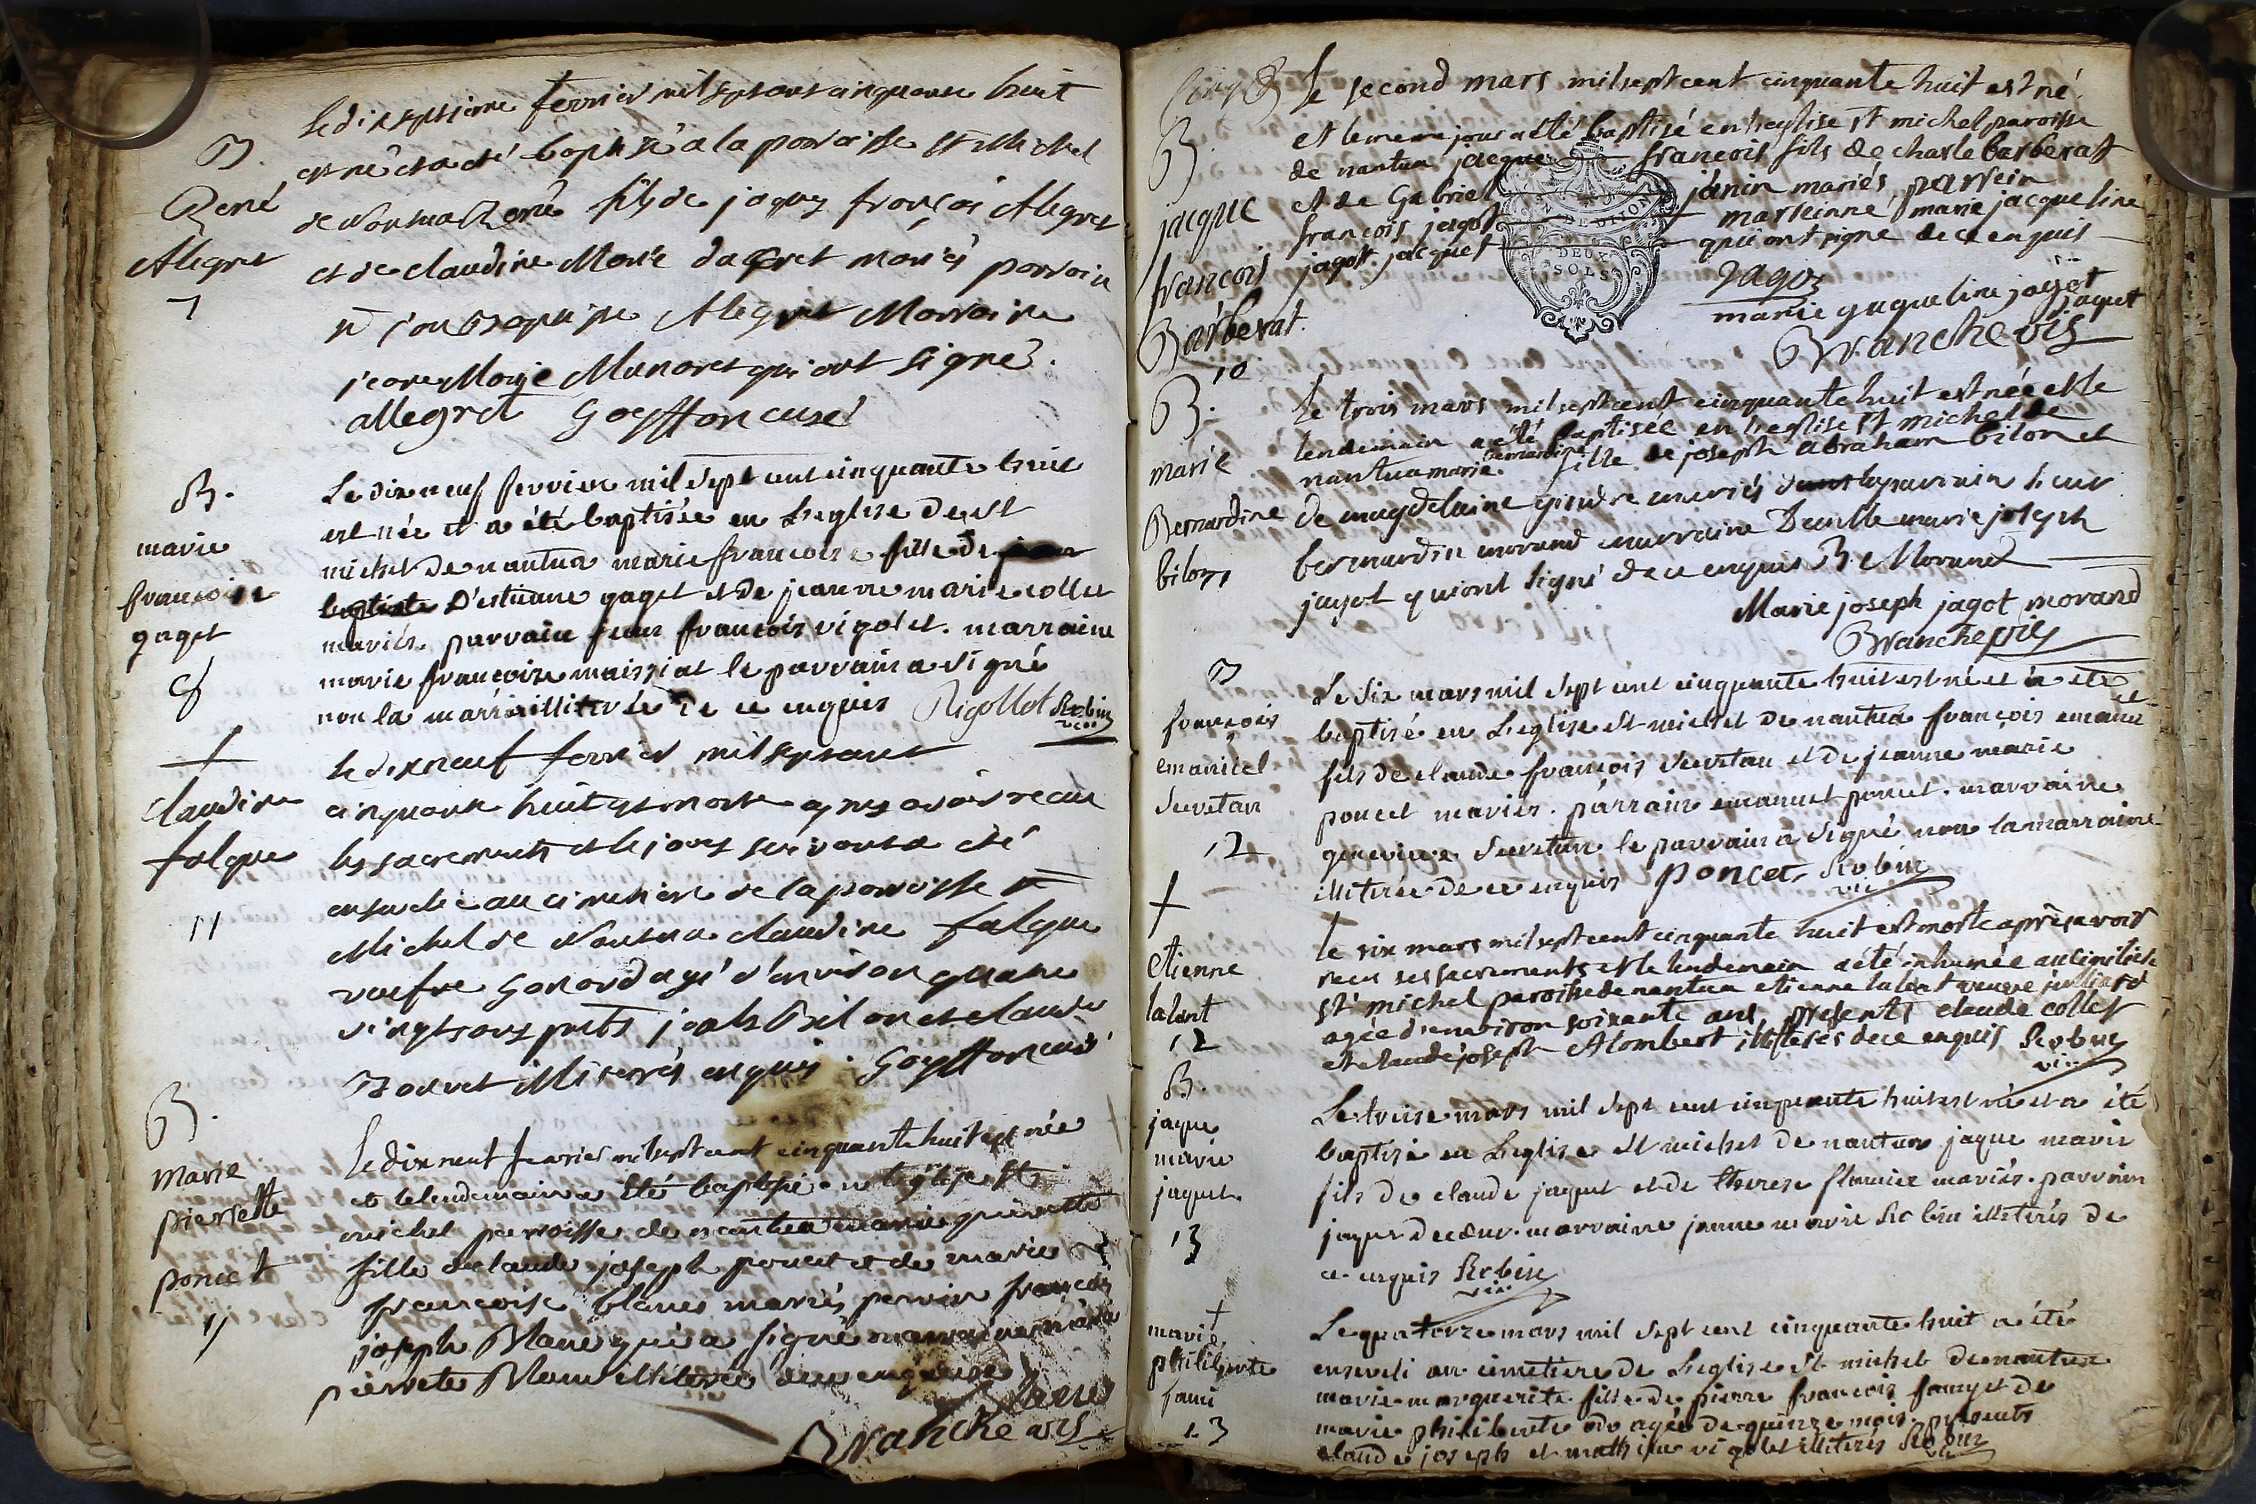 B.
René
Alegret
7
Le dixseptieme fevrier mil sept cent cinquante huit
est né et a été baptisé a la parroisse St Michel
de Nantua René fils de jaques françois Alegret
et de claudine Marie dagret mariés parrain
Alegret Marraine
Marie Munoret qui ont signé.
allegret Goyffon curé
B.
marie
francoise
gaget
8
Le dix neuf fevrier mil sept cent cinquante huit
est née et a été baptisée en Leglise de st
michel de nantua marie francoise fille de
D'estienne gaget et de jeanne marie collet
mariés. parrain jean francois vigolet. marraine
marie francoise maissiat le parrain a signé
non la marraine illiterée de ce enquis Rigollot Robin
vic
+
claudine
falque
11
Le dixneuf fevrier mil sept cent
cinquante huit est morte apres avoir recue
les sacrements et le jour suivant a été
ensevelie au cimetiere de la parroisse st
Michel de Nantua claudine falque
veufve Gonord agé d'environ quatre
vingts ans pnts Bilon et claude
Bonnet illiterés enquis. Goyffon curé
B.
Marie
pierrette
poncet
11
Le dix neuf fevrier mil sept cent cinquante huit est née
et le lendemain a été baptisée en l'église St
michel parroisse de nantua marie pierrette
fille de claude joseph poncet et de marie
françoise blanc mariés parrain francois
joseph Blanc qui a signé marraine marie
pierrette Blanc illiterée de ce enquise
Blanc
Branchevis
B
jacque
francois
Barberat.
10
Le second mars mil sept cent cinquante huit est né
et le meme jour a été baptisé en l'eglise st michel paroisse
de nantua jacque francois fils de charle barberat
et de Gabriel janin mariés parrein
francois jagot marreinne marie jacqueline
jagot jacquet qui ont signe de ce enquis
DE DIJON
DEUX
SOLS
Jagot
marie jaqueline jagot
jaquet
Branchevis
B.
marie
Bernardine
bilon
Le trois mars mil sept cent cinquante huit est née et le
lendemain a été baptisée en l'eglise st michel de
nantua marie bernardine fille de joseph abraham bilon et
de magdelaine mariés parrain sieur
bernardin morand marraine Demlle marie joseph
jagot qui ont signé de ce enquis B. Morand
Marie joseph jagot morand
Branchevis
B
françois
emanüel
Secretan
12
Le six mars mil sept cent cinquante huit est né et a été
baptisé en Leglise st michel de nantua françois emanuel
fils de claude françois Secretan et de jeanne marie
poncet mariés. parrain emanuel poncet. marraine
genevieve Secretan le parrain a signé non la marraine
illiterée de ce enquis Poncet Robin
vic
+
etienne
lalant
12
Le six mars mil sept cent cinquante huit est morte après avoir
recu ses sacrements et le lendemain a été inhumée au cimitiere
st michel paroisse de nantua etienne lalant veuve juilliard
agée d'environ soixante ans, présents claude collet
et claude joseph Alombert illiterés de ce enquis Robin
vic
B.
jaque
marie
jaquet
13
Le treise mars mil sept cent cinquante huit est né et a été
baptisé en Leglise st michel de nantua jaque marie
fils de claude jaquet et de therese mariés. parrain
jaque marraine janne marie Robin illiterés de
ce enquis Robin
vic
+
marie
philiberte
fami
13
Le quatorze mars mil sept cent cinquante huit a été
enseveli au cimetiere de Leglise st michel de nantua
marie marguerite fille de pierre francois famy et de
marie philiberte agée de quinze mois. présents
claude joseph et mathieu vigolet illiterés Robin